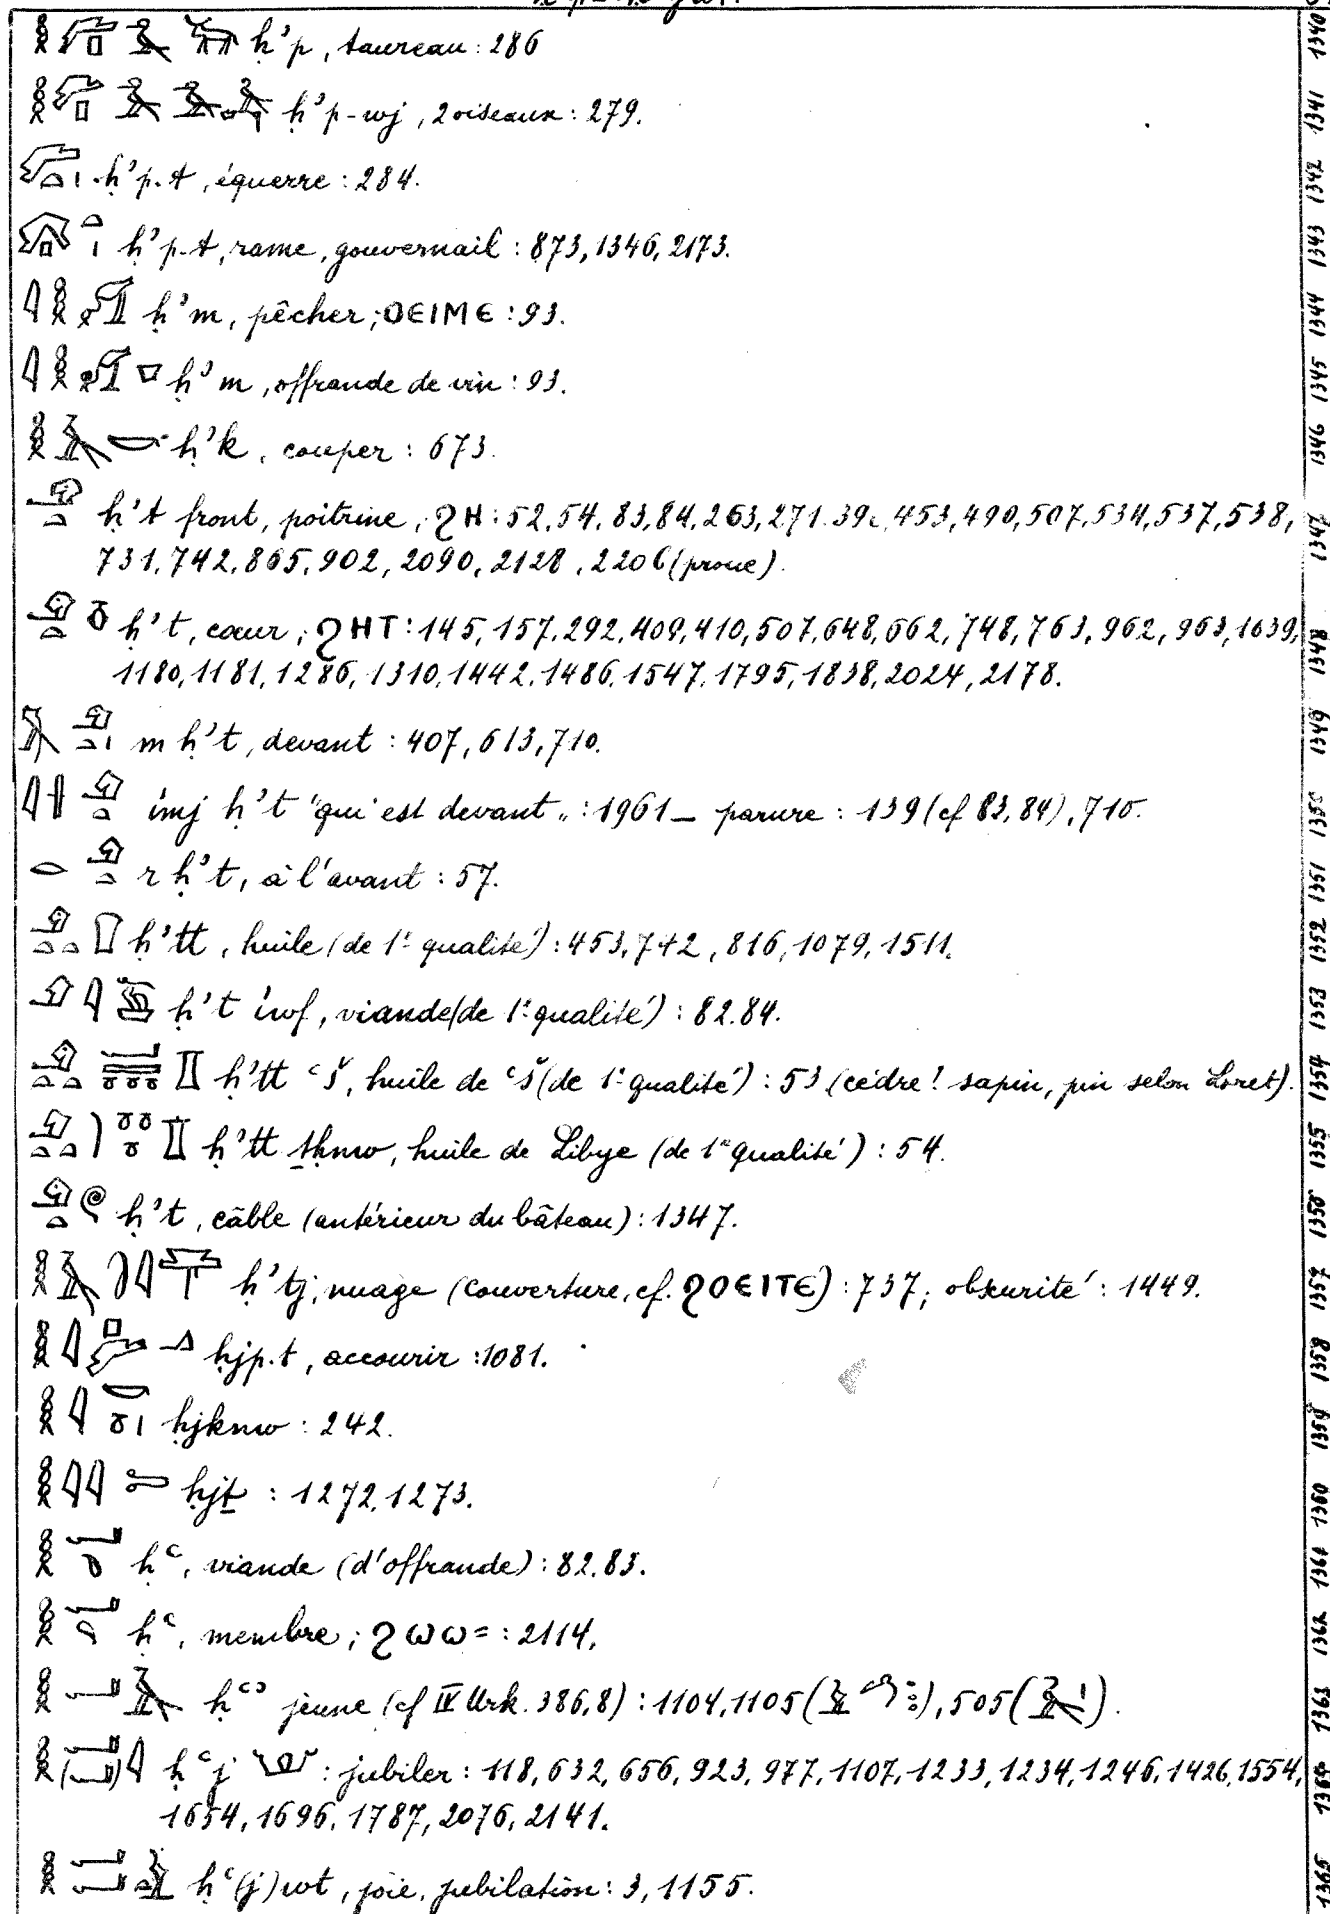 ḥꜣp, taureau : 286 1340
ḥꜣp-wj, 2 oiseaux : 279. 1341
ḥꜣp.t, équerre : 284. 1342
ḥꜣp.t, rame, gouvernail : 873, 1346, 2173. 1343
ḥꜣm, pêcher; ⲞⲈⲒⲘⲈ : 93. 1344
ḥꜣm, offrande de vin : 93. 1345
ḥꜣk, couper : 673. 1346
ḥꜣt front, poitrine, ϨⲎ : 52, 54, 83, 84, 263, 271. 453, 490, 507, 534, 537, 538, 1347
731, 742, 865, 902, 2090, 2128, 2206 (proue).
ḥꜣt, cœur; ϨⲎⲦ : 145, 157, 292, 409, 410, 507, 648, 662, 748, 763, 962, 963, 1039, 1348
1180, 1181, 1286, 1310, 1442, 1486, 1547, 1795, 1838, 2024, 2178.
m ḥꜣt, devant : 407, 613, 710. 1349
ỉmj ḥꜣt "qui est devant„ : 1961 _ parure : 139 (cf 83, 84), 710. 1350
r ḥꜣt, à l'avant : 57. 1351
ḥꜣtt, huile (de 1e qualité) : 453, 742, 816, 1079, 1511. 1352
ḥꜣt ỉwf, viande (de 1e qualité) : 82. 84. 1353
ḥꜣtt ꜥš, huile de ꜥš (de 1e qualité) : 53 (cèdre! sapin, pin selon Loret). 1354
ḥꜣtt ṯḥnw, huile de Libye (de 1e qualité) : 54. 1355
ḥꜣt, câble (antérieur du bâteau) : 1347. 1356
ḥꜣtj, nuage (couverture, cf. ϨⲞⲈⲒⲦⲈ) : 737; obscurité : 1449. 1357
ḥjp.t, accourir : 1081. 1358
ḥjknw : 242. 1359
ḥjṯ : 1272, 1273. 1360
ḥꜥ, viande (d'offrande) : 82. 83. 1361
ḥꜥ, membre; ϨⲰⲰ= : 2114, 1362
ḥꜥꜣ jeune (cf IV Urk. 386,8) : 1104, 1105 ( ), 505 ( ). 1363
ḥꜥj : jubiler : 118, 632, 656, 923, 977, 1107, 1233, 1234, 1246, 1426, 1554, 1364
1654, 1696, 1787, 2076, 2141.
ḥꜥ(j)wt, joie, jubilation : 3, 1155. 1365